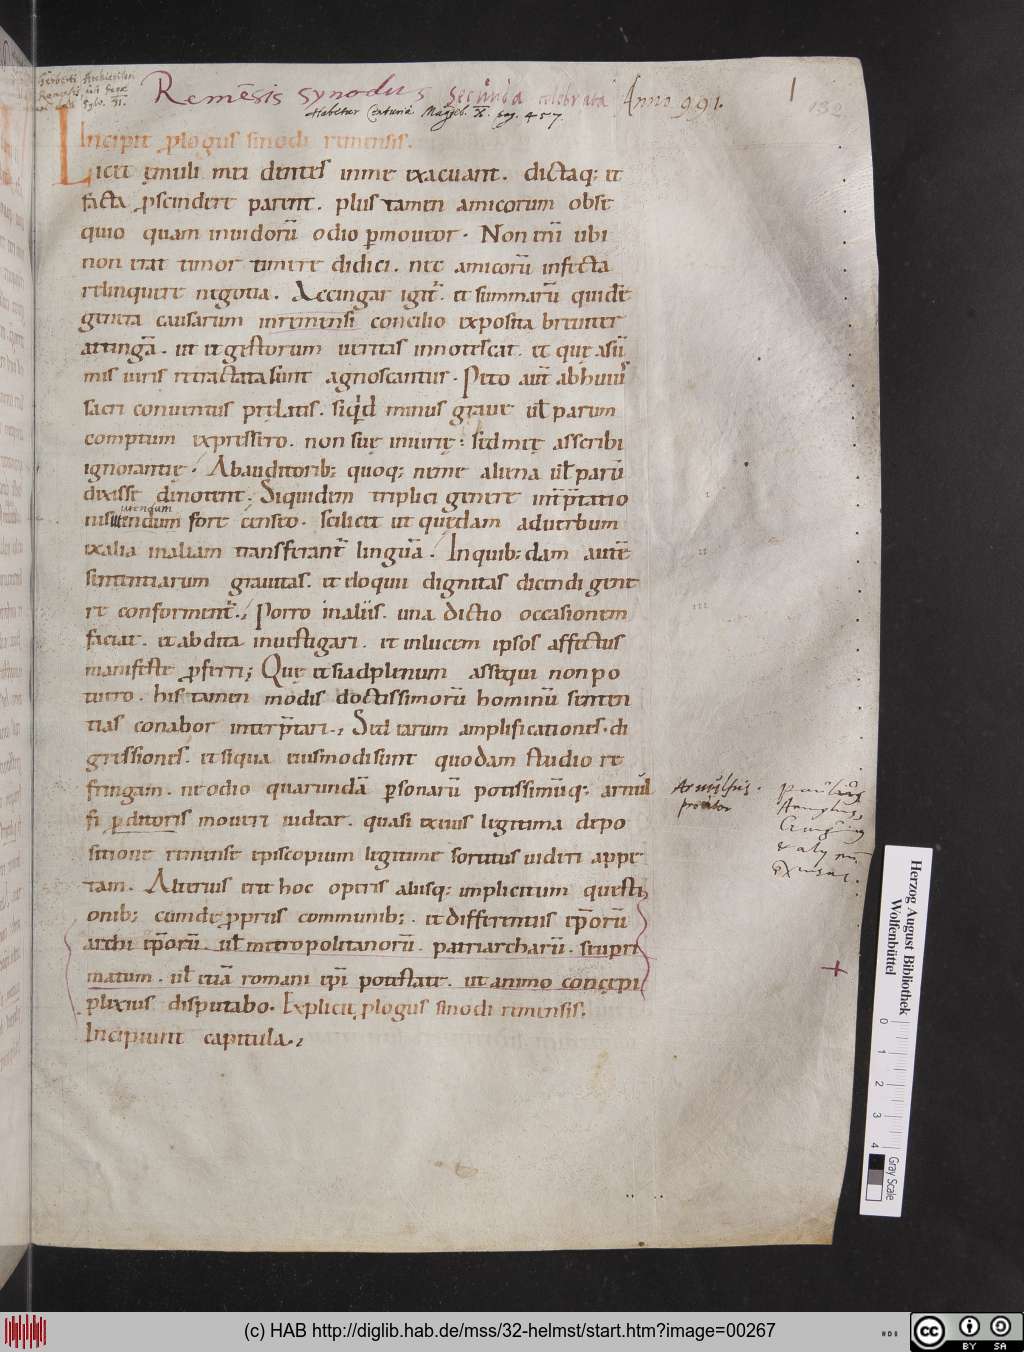 Remēsis synodus secunda celebrata Anno 991.
1
132
Habetur Centuria Magdeb. X. pag. 457.
Incipit plogus sinodi remensis.
Licet emuli mei dentes in me exacuant. dictaq; et
facta pscindere parent. plus tamen amicorum obse
quio quam inuidorū odio pmoueor. Non tm̄ ubi
non erat timor timere didici. nec amicorū infecta
relinquere negotia. Accingar igit̄. et summarū quidē
genera causarum inremensi concilio exposita breuiter
attingā. ut et gestorum ueritas innotescat. et quę asū
mis uiris retractata sunt agnoscantur. Peto aut̄ ab huius
sacri conuentus prelatis. siqd minus graue ul parum
comptum expressero. non suę iniurię; sed meę asscribi
ignorantię. Ab auditorib; quoq; ne me aliena ul parū
dixisse denotent; Siquidem triplici genere int̄p̄tatio
utendum
nis utendum fore censeo. scilicet ut quędam ad uerbum
ex alia in aliam transferant̄ linguā. In quib;dam autē
sententiarum grauitas. et eloquii dignitas dicendi gene
re conforment̄; Porro in aliis. una dictio occasionem
faciat. et abdita inuestigari. et in lucem ipsos affectus
manifeste pferri; Quę etsi ad plenum assequi non po
tuero. his tamen modis doctissimorū hominū senten
tias conabor interp̄tari; Sed earum amplificationes. di
gressiones. et siqua eiusmodi sunt quodam studio re
fringam. ne odio quarundā psonarū potissimūq; arnul
fi pditoris moueri uidear. quasi ex eius legitima depo
sitione remense episcopium legitime sortitus uideri appe
tam. Alterius erit hoc operis aliusq; implicitum questi
onib; cum de ppriis communib;. et differentiis ep̄orū
archi ep̄orū. ul metropolitanorū. patriarcharū. seu pri
matum. ul etiā romani ep̄i potestate. ut animo concępi
plixius disputabo. Explicit plogus sinodi remensis.
Incipiunt capitula.,
Arnulfus.
proditor
Herzog August Bibliothek
Wolfenbüttel
0 1 2 3 4
Gray Scale
(c) HAB http://diglib.hab.de/mss/32-helmst/start.htm?image=00267
cc BY SA